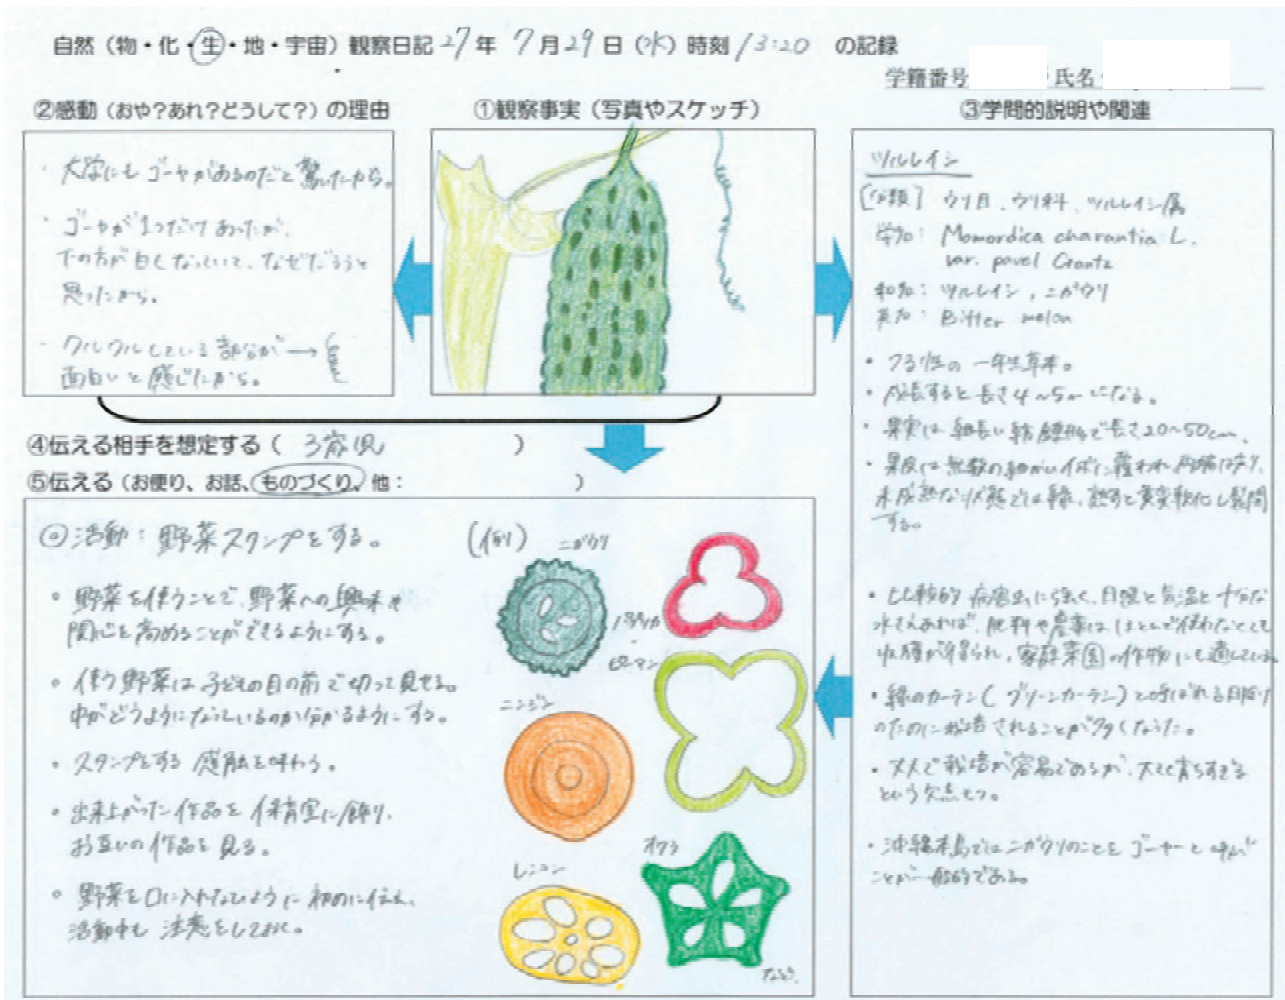 自然（物・化・生・地・宇宙）観察日記 27年 7月29日（水）時刻 13:20 の記録
学籍番号 氏名
②感動（おや？あれ？どうして？）の理由
・大学にもゴーヤがあるのだと驚いたから。
・ゴーヤが1つだけあったが、
下の方が白くなっていて、なぜだろうと
思ったから。
・クルクルしている部分が→
面白いと感じたから。
①観察事実（写真やスケッチ）
③学問的説明や関連
ツルレイシ
［分類］ウリ目、ウリ科、ツルレイシ属
学名：Momordica charantia L.
var. pavel Crantz
和名：ツルレイシ，ニガウリ
英名：Bitter melon
・つる性の一年生草本。
・成長すると長さ4～5mになる。
・果実は細長い紡錘形で長さ20～50cm、
・果皮は無数の細かいイボに覆われ両端は尖り、
未成熟な状態では緑、熟すと黄変軟化し裂開
する。
・比較的病害虫に強く、日照と気温と十分な
水さえあれば、肥料や農薬はほとんど使わなくとも
収穫が得られ、家庭菜園の作物にも適している。
・緑のカーテン（グリーンカーテン）と呼ばれる日除け
のために栽培されることが多くなった。
・丈夫で栽培が容易であるが、大きく育ちすぎる
という欠点もつ。
・沖縄本島ではニガウリのことをゴーヤーと呼ぶ
ことが一般的である。
④伝える相手を想定する（ 3歳児 ）
⑤伝える（お便り、お話、ものづくり、他： ）
◎活動：野菜スタンプをする。
・野菜を使うことで、野菜への興味や
関心を高めることができるようにする。
・使う野菜は子どもの目の前で切って見せる。
中がどうようになっているのか分かるようにする。
・スタンプをする感触を味わう。
・出来上がった作品を保育室に飾り、
お互いの作品を見る。
・野菜を口に入れないように初めに伝え、
活動中も注意をしておく。
（例）
ニガウリ
パプリカ
ピーマン
ニンジン
オクラ
レンコン
など。